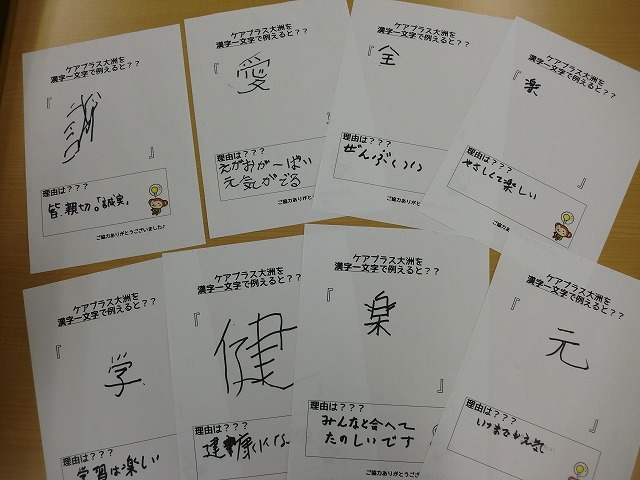 ケアプラス大洲を
漢字一文字で例えると？？
『
』
理由は？？？
皆、親切。「誠実」
ご協力ありがとうございました♪
ケアプラス大洲を
漢字一文字で例えると？？
『愛
理由は？？？
えがおが〜ぱい
元気がでる
ご協力ありがとうござ
ケアプラス大洲を
漢字一文字で例えると？？
『全
理由は？？？
ぜんぶいい
ご協力ありがと
ケアプラス大洲を
漢字一文字で例えると？？
『楽
』
理由は？？？
やさしくて楽しい
ご協力あ
ケアプラス大洲を
漢字一文字で例えると？？
『学
理由は？？？
学習は楽しい
ケアプラス大洲を
漢字一文字で例えると？？
『健
理由は？？？
ケアプラス大洲を
漢字一文字で例えると？？
『楽
』
理由は？？？
みんなと会へて
たのしいです
ご協力ありがとうござ
ケアプラス大洲を
漢字一文字で例えると？？
『元
』
理由は？？？